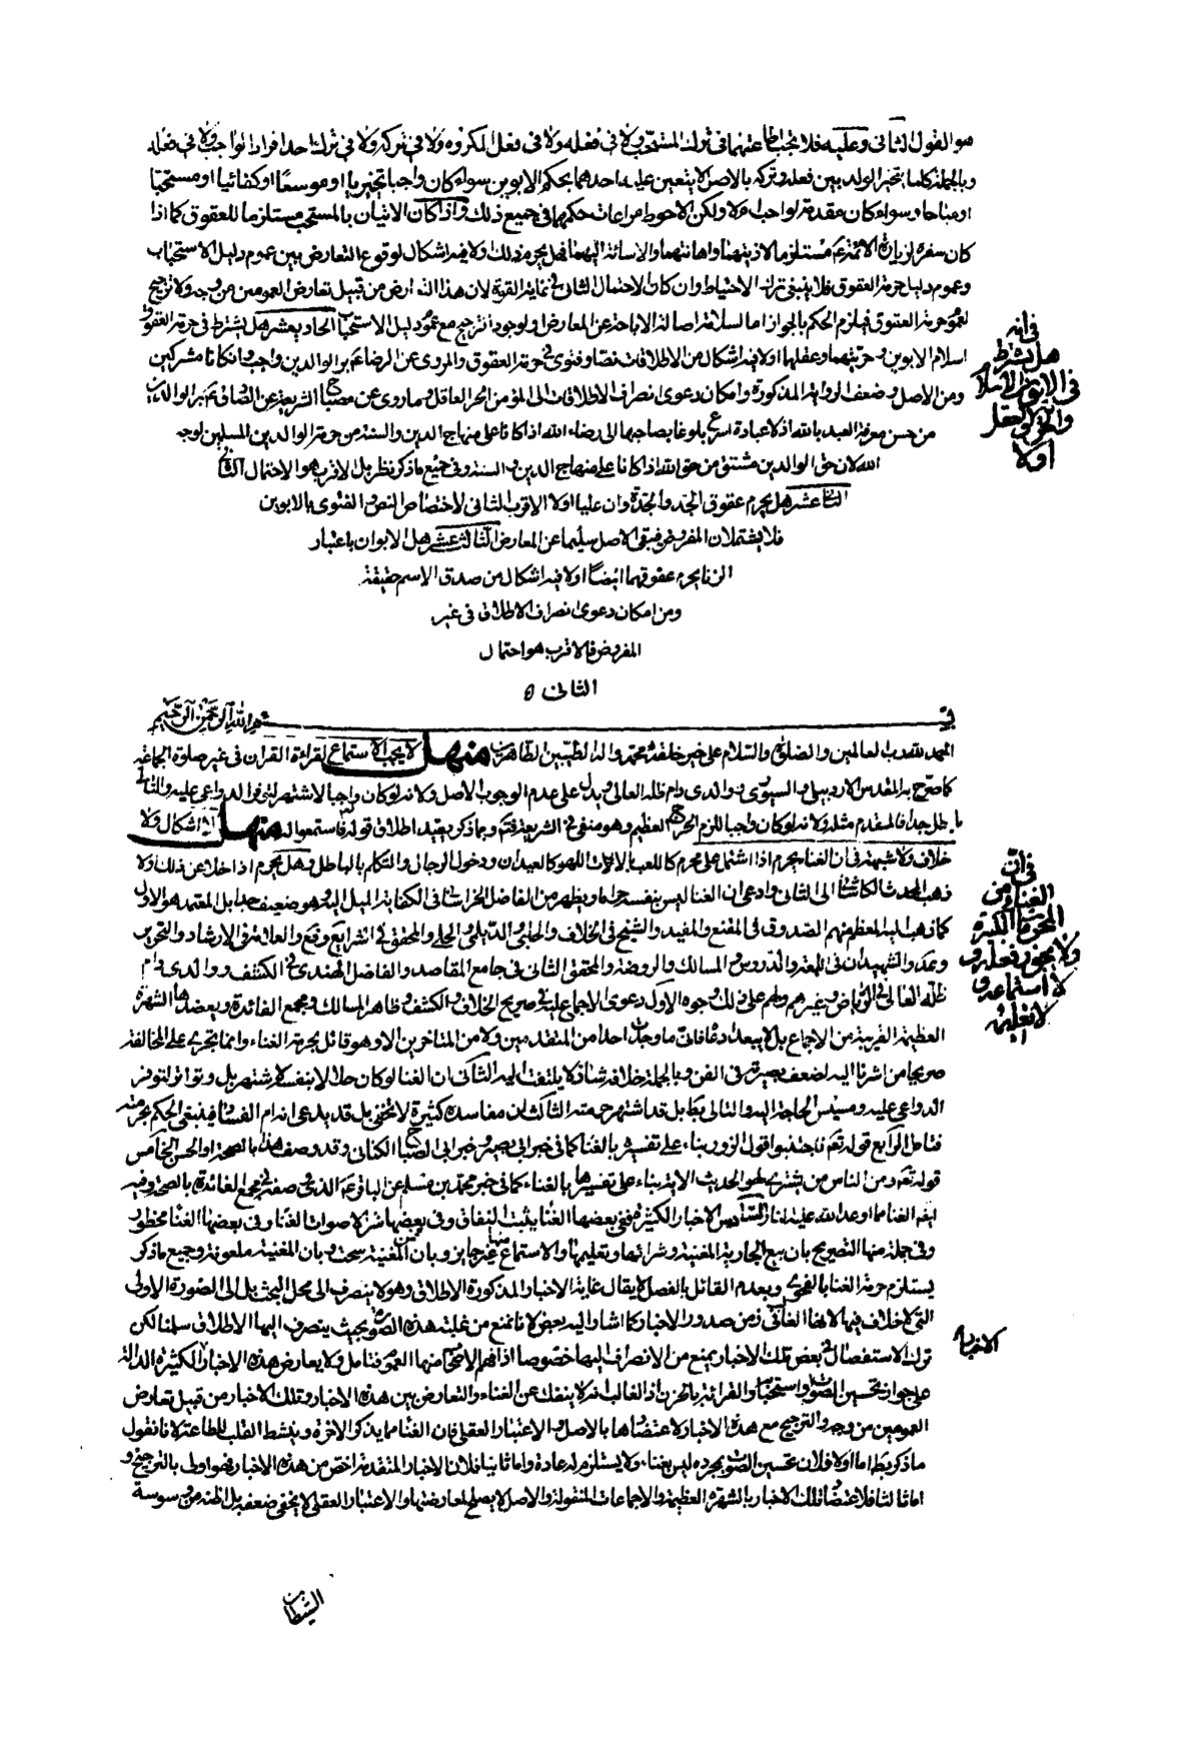 هو القول الثانى وعليه فلا يجب اطاعتهما فى ترك المستحب ولا فى فعله ولا فى فعل المكروه ولا فى تركه ولا فى ترك احد افراد الواجب ولا فى فعله
وبالجملة كلما يتخير الولد بين فعله وتركه بالاصل لا يتعين عليه احدهما بحكم الابوين سواء كان واجبا تخييريا او موسعا او كفائيا او مستحبا
او مباحا وسواء كان مقدمة لواجب ام لا ولكن الاحوط مراعات حكمهما فى جميع ذلك واذا كان الاتيان بالمستحب مستلزما للعقوق كما اذا
كان سفره لزيارة الائمة ع مستلزما لاذيتهما واهانتهما والاسائة اليهما فهل يحرم ذلك اولا فيه اشكال لوقوع التعارض بين عموم دليل الاستحباب
وعموم دليل حرمة العقوق فلا ينبغى ترك الاحتياط وان كان الاحتمال الثانى فى غاية القوة لان هذا التعارض من قبيل تعارض العمومين من وجه ولا ترجيح
لعموم حرمة العقوق فيلزم الحكم بالجواز اما لسلامة اصالة الاباحة عن المعارض او لوجود الترجيح مع عموم دليل الاستحباب الحاديعشر هل يشترط فى حرمة العقوق
اسلام الابوين وحريتهما وعقلهما اولا فيه اشكال من الاطلاقات نصا وفتوى فى حرمة العقوق والمروى عن الرضا ع بر الوالدين واجب وان كانا مشركين
ومن الاصل وضعف الرواية المذكورة وامكان دعوى انصراف الاطلاقات الى المؤمن الحر العاقل وما روى عن مصباح الشريعة عن الصادق ع بر الوالدين
من حسن معرفة العبد بالله اذ لا عبادة اسرع بلوغا بصاحبها الى رضاء الله اذا كانا على منهاج الدين والسنة من حرمة الوالدين المسلمين لوجه
الله لان حق الوالدين مشتق من حق الله اذا كانا على منهاج الدين والسنة وفى جميع ما ذكر نظر بل الاقرب هو الاحتمال الثانى
الثانيعشر هل يحرم عقوق الجد والجدة وان عليا اولا الاقرب الثانى لاختصاص النص والفتوى بالابوين
فلا يشتملان المفروض فيبقى الاصل سليما عن المعارض الثالثعشر هل الابوان باعتبار
الزنا يحرم عقوقهما ايضا اولا فيه اشكال من صدق الاسم حقيقة
ومن امكان دعوى انصراف الاطلاق فى غير
المفروض فالاقرب هو احتمال
الثانى
فى انه
هل يشترط
فى الابوين الاسلام
والحرية والعقل
اولا
بسم الله الرحمن الرحيم
الحمد لله رب العالمين والصلوة والسلام على خير خلقه محمد واله الطيبين الطاهرين منهل لا يجب الاستماع لقراءة القران فى غير صلوة الجماعة
كما صرح به المقدس الاردبيلى والسيورى والدى دام ظله العالى ويدل على عدم الوجوب الاصل ولانه لو كان واجبا لاشتهر لتوفر الدواعى عليه والتالى
باطل جدا فالمقدم مثله ولانه لو كان واجبا للزم الحرج العظيم وهو منفى فى الشريعة فتم وبما ذكر يقيد اطلاق قوله فاستمعوا له منهل لا اشكال ولا
خلاف ولا شبهة فى ان الغناء يحرم اذا اشتمل على محرم كاللعب بالات اللهو كالعيدان ودخول الرجال والتكلم بالباطل وهل يحرم اذا خلا عن ذلك اولا
ذهب المحدث الكاشانى الى الثانى وادعى ان الغنا ليس بنفسه حراما ويظهر من الفاضل الخراسانى فى الكفاية الميل اليه وهو ضعيف جدا بل المعتمد هو الاول
كما ذهب اليه المعظم منهم الصدوق فى المقنع والمفيد والشيخ فى الخلاف والحلبى والديلمى والحلى والمحقق فى الشرايع وفع والعلامة فى الارشاد والتحرير
وعد والشهيدان فى اللمعة والدروس والمسالك والروضة والمحقق الثانى فى جامع المقاصد والفاضل الهندى فى الكشف ووالدى دام
ظله العالى فى الرياض وغيرهم ولهم على ذلك وجوه الاول دعوى الاجماع عليه فى صريح الخلاف والكشف وظاهر المسالك ومجمع الفائدة ويعضدها الشهرة
العظيمة القريبة من الاجماع بل لا يبعد ادعائه فانى ما وجدت احدا من المتقدمين ولا من المتاخرين الا وهو قائل بحرمة الغناء وانما تجرى على المخالفة
صريحا من اشرنا اليه لضعف بصيرته فى الفن وبالجملة خلافه شاذ لا يلتفت اليه الثانى ان الغنا لو كان حلالا بنفسه لاشتهر بل وتواتر لتوفر
الدواعى عليه ومسيس الحاجة اليه والتالى بط بل قد اشتهر حرمته الثالث ان مفاسده كثيرة لا تخفى بل قد يدعى انه ام الفساد فينبغى الحكم بحرمته
فتامل الرابع قوله تع فاجتنبوا قول الزور بناء على تفسيره بالغنا كما فى خبر ابى بصير وخبر ابى الصباح الكنانى وقد وصف هذا بالصحة او الحسن الخامس
قوله تع ومن الناس من يشترى لهو الحديث الاية بناء على تفسيرها بالغناء كما فى خبر محمد بن مسلم عن الباقر ع الذى وصفه فى مجمع الفائدة بالصحة وفيه
ايضا الغنا مما اوعد الله عليه النار السادس الاخبار الكثيرة ففى بعضها الغنا ينبت النفاق وفى بعضها شر الاصوات الغنا وفى بعضها الغنا محظور
وفى جملة منها التصريح بان بيع الجارية المغنية وشرائها وتعليمها والاستماع منها غير جايز وبان ثمن المغنية سحت وبان المغنية ملعونة وجميع ما ذكر
يستلزم حرمة الغنا بالفحوى وبعدم القائل بالفصل لا يقال غاية الاخبار المذكورة الاطلاق وهو لا ينصرف الى محل البحث بل الى الصورة الاولى
التى لا خلاف فيها لانها الغالب فى زمن صدور الاخبار كما اشار اليه بعض لانا نمنع من غلبة هذه الصورة بحيث ينصرف اليها الاطلاق سلمنا لكن
ترك الاستفصال فى بعض تلك الاخبار يمنع من الانصراف اليها خصوصا اذا فهم الاصحاب منها العموم فتامل ولا يعارض هذه الاخبار الكثيرة الدالة
على جواز تحسين الصوت واستحباب القرائة بالحزن اذ الغالب انه لا ينفك عن الغناء والتعارض بين هذه الاخبار وتلك الاخبار من قبيل تعارض
العمومين من وجه والترجيح مع هذه الاخبار لاعتضادها بالاصل والاعتبار العقلى فان الغنا مما يذكر الاخرة وينشط القلب للطاعة لانا نقول
ما ذكر بط اما اولا فلان تحسين الصوت بمجرده ليس بغناء ولا يستلزمه عادة واما ثانيا فلان الاخبار المتقدمة اخص من هذه الاخبار فهو اولى بالترجيح و
اما ثالثا فلاعتضاد تلك الاخبار بالشهرة العظيمة والاجماعات المنقولة والاصل لا يصلح لمعارضتها والاعتبار العقلى لا يخفى ضعفه بل انه من وسوسة
فى ان
الغناء من
المحرمات الكبيرة
ولا يجوز فعله و
لا استماعه و
لا تعليمه
الاخبار
الشيطان